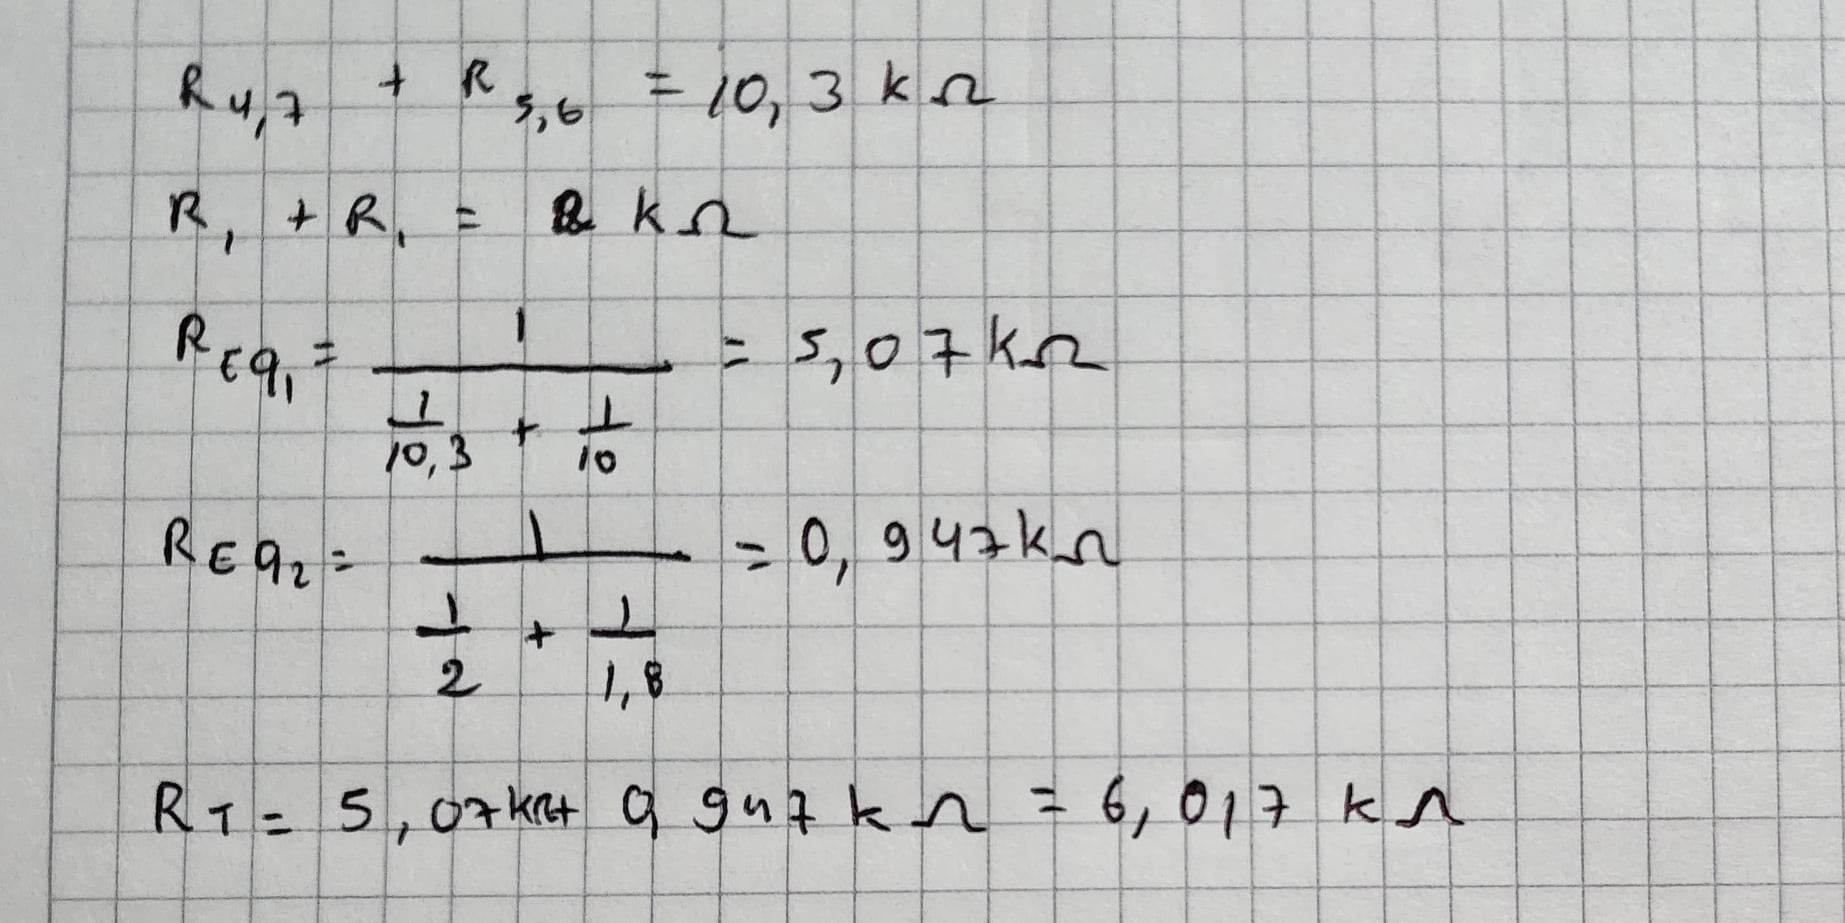 R4,7 + R5,6 = 10,3 kΩ
R1 + R1 = 2 kΩ
REq1 = 1/(1/10,3 + 1/10) = 5,07 kΩ
REq2 = 1/(1/2 + 1/1,8) = 0,947 kΩ
RT = 5,07 kΩ + 0,947 kΩ = 6,017 kΩ